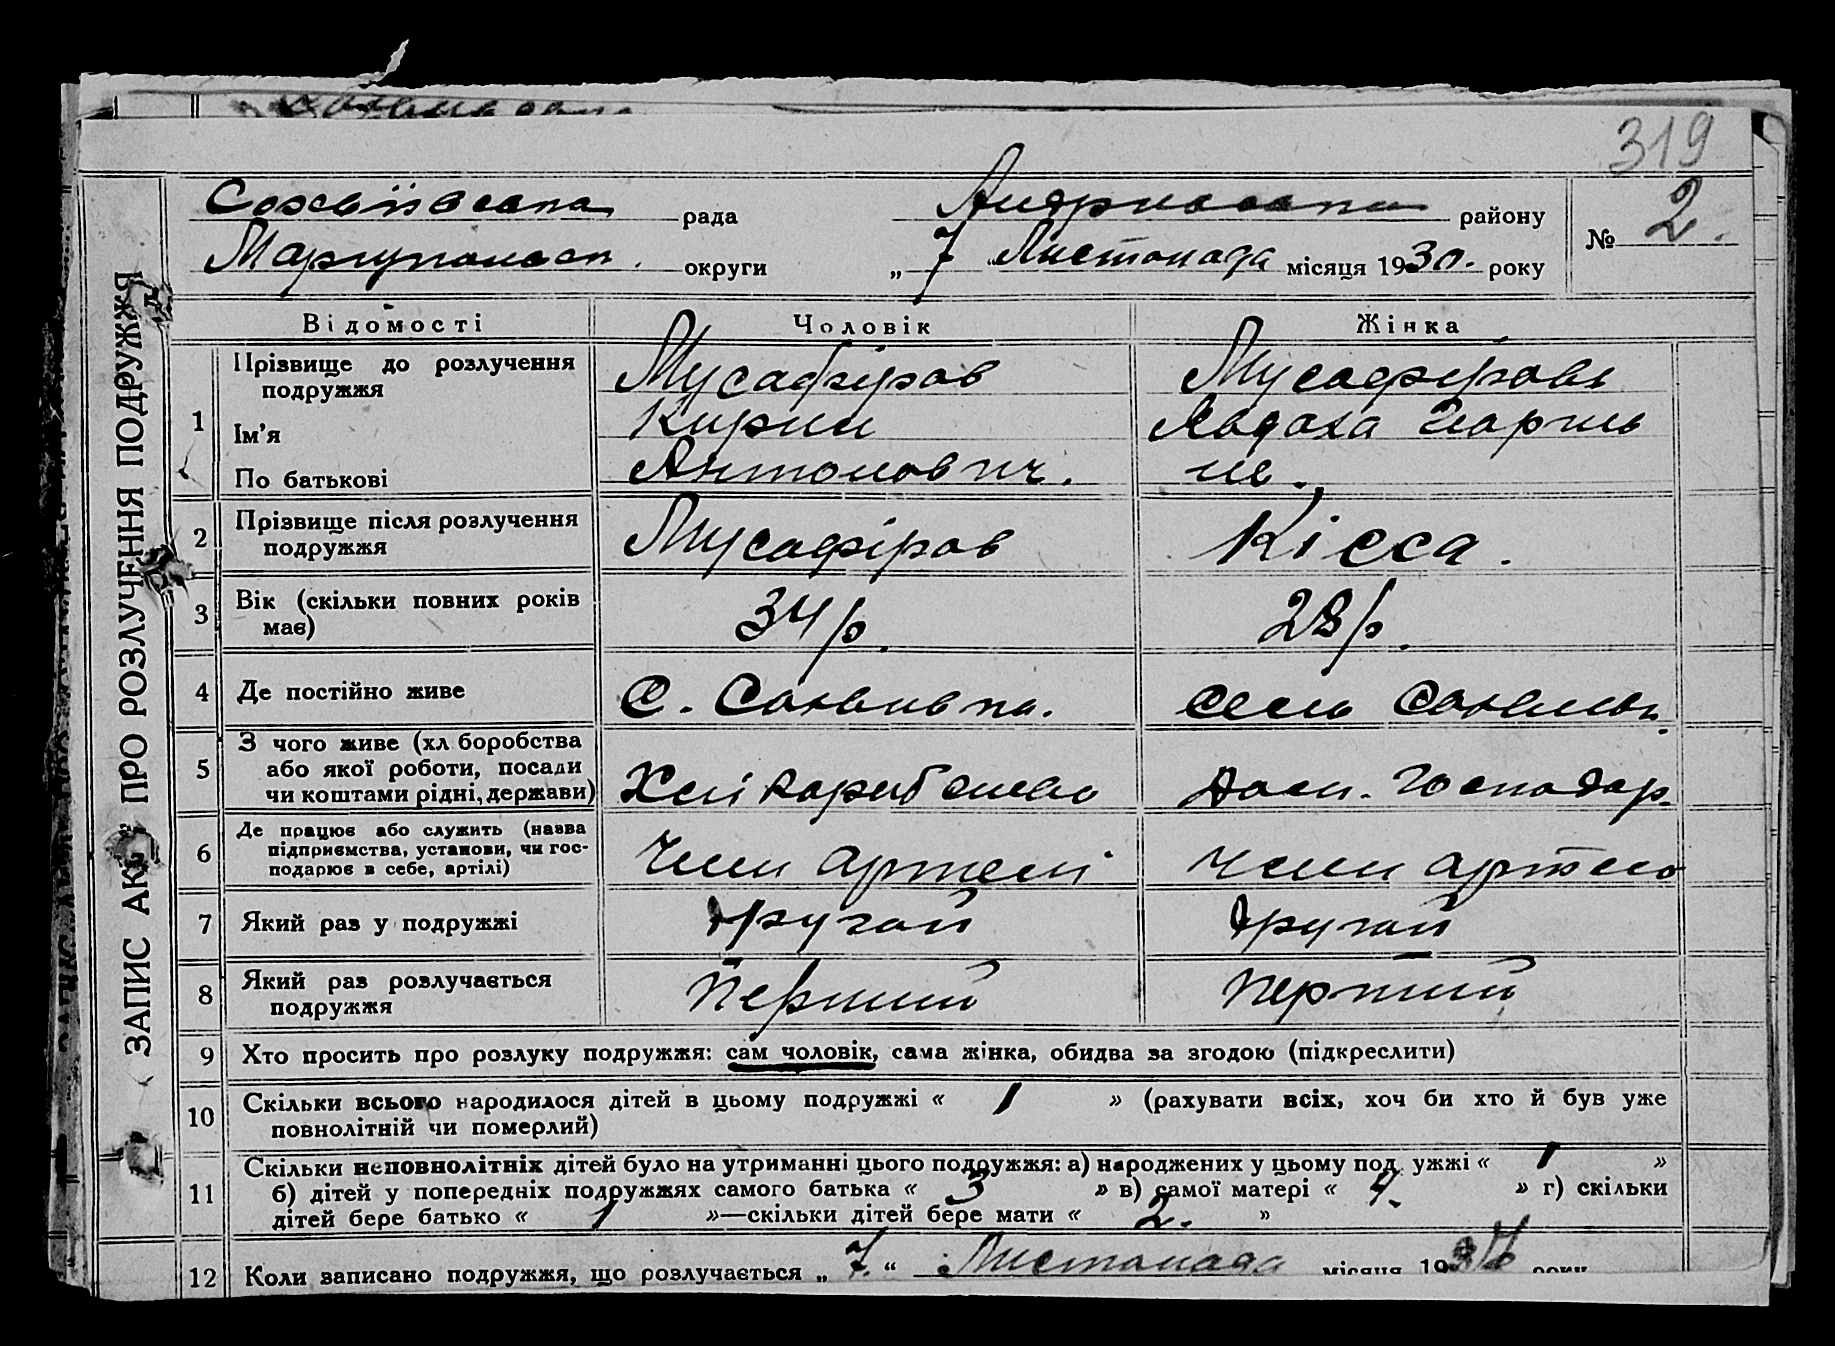 319
рада
району
№ 2.
округи „ 7 “ Листопада місяця 1930. року
ЗАПИС АКТ ПРО РОЗЛУЧЕННЯ ПОДРУЖЖЯ
Відомості Чоловік Жінка
1
Прізвище до розлучення подружжя Мусафіров Мусафірова
Ім'я Кирил
По батькові Антонович.
2 Прізвище після розлучення подружжя Мусафіров Кісса.
3 Вік (скільки повних років має) 34 р. 28 р.
4 Де постійно живе С. Село
5 З чого живе (хл боробства або якої роботи, посади чи коштами рідні, держави) Дом. господар.
6 Де працює або служить (назва підприємства, установи, чи господарює в себе, артілі) Член артелі член артелі
7 Який раз у подружжі другий другий
8 Який раз розлучається подружжя Перший Перший
9 Хто просить про розлуку подружжя: сам чоловік, сама жінка, обидва за згодою (підкреслити)
10 Скільки всього народилося дітей в цьому подружжі « 1 » (рахувати всіх, хоч би хто й був уже
повнолітній чи померлий)
11 Скільки неповнолітніх дітей було на утриманні цього подружжя: а) народжених у цьому под ужжі « 1 »
б) дітей у попередніх подружжях самого батька « 3 » в) самої матері « » г) скільки
дітей бере батько « 1 »—скільки дітей бере мати « 2. »
12 Коли записано подружжя, що розлучається „ 7. “ Листопада місяця 19 року